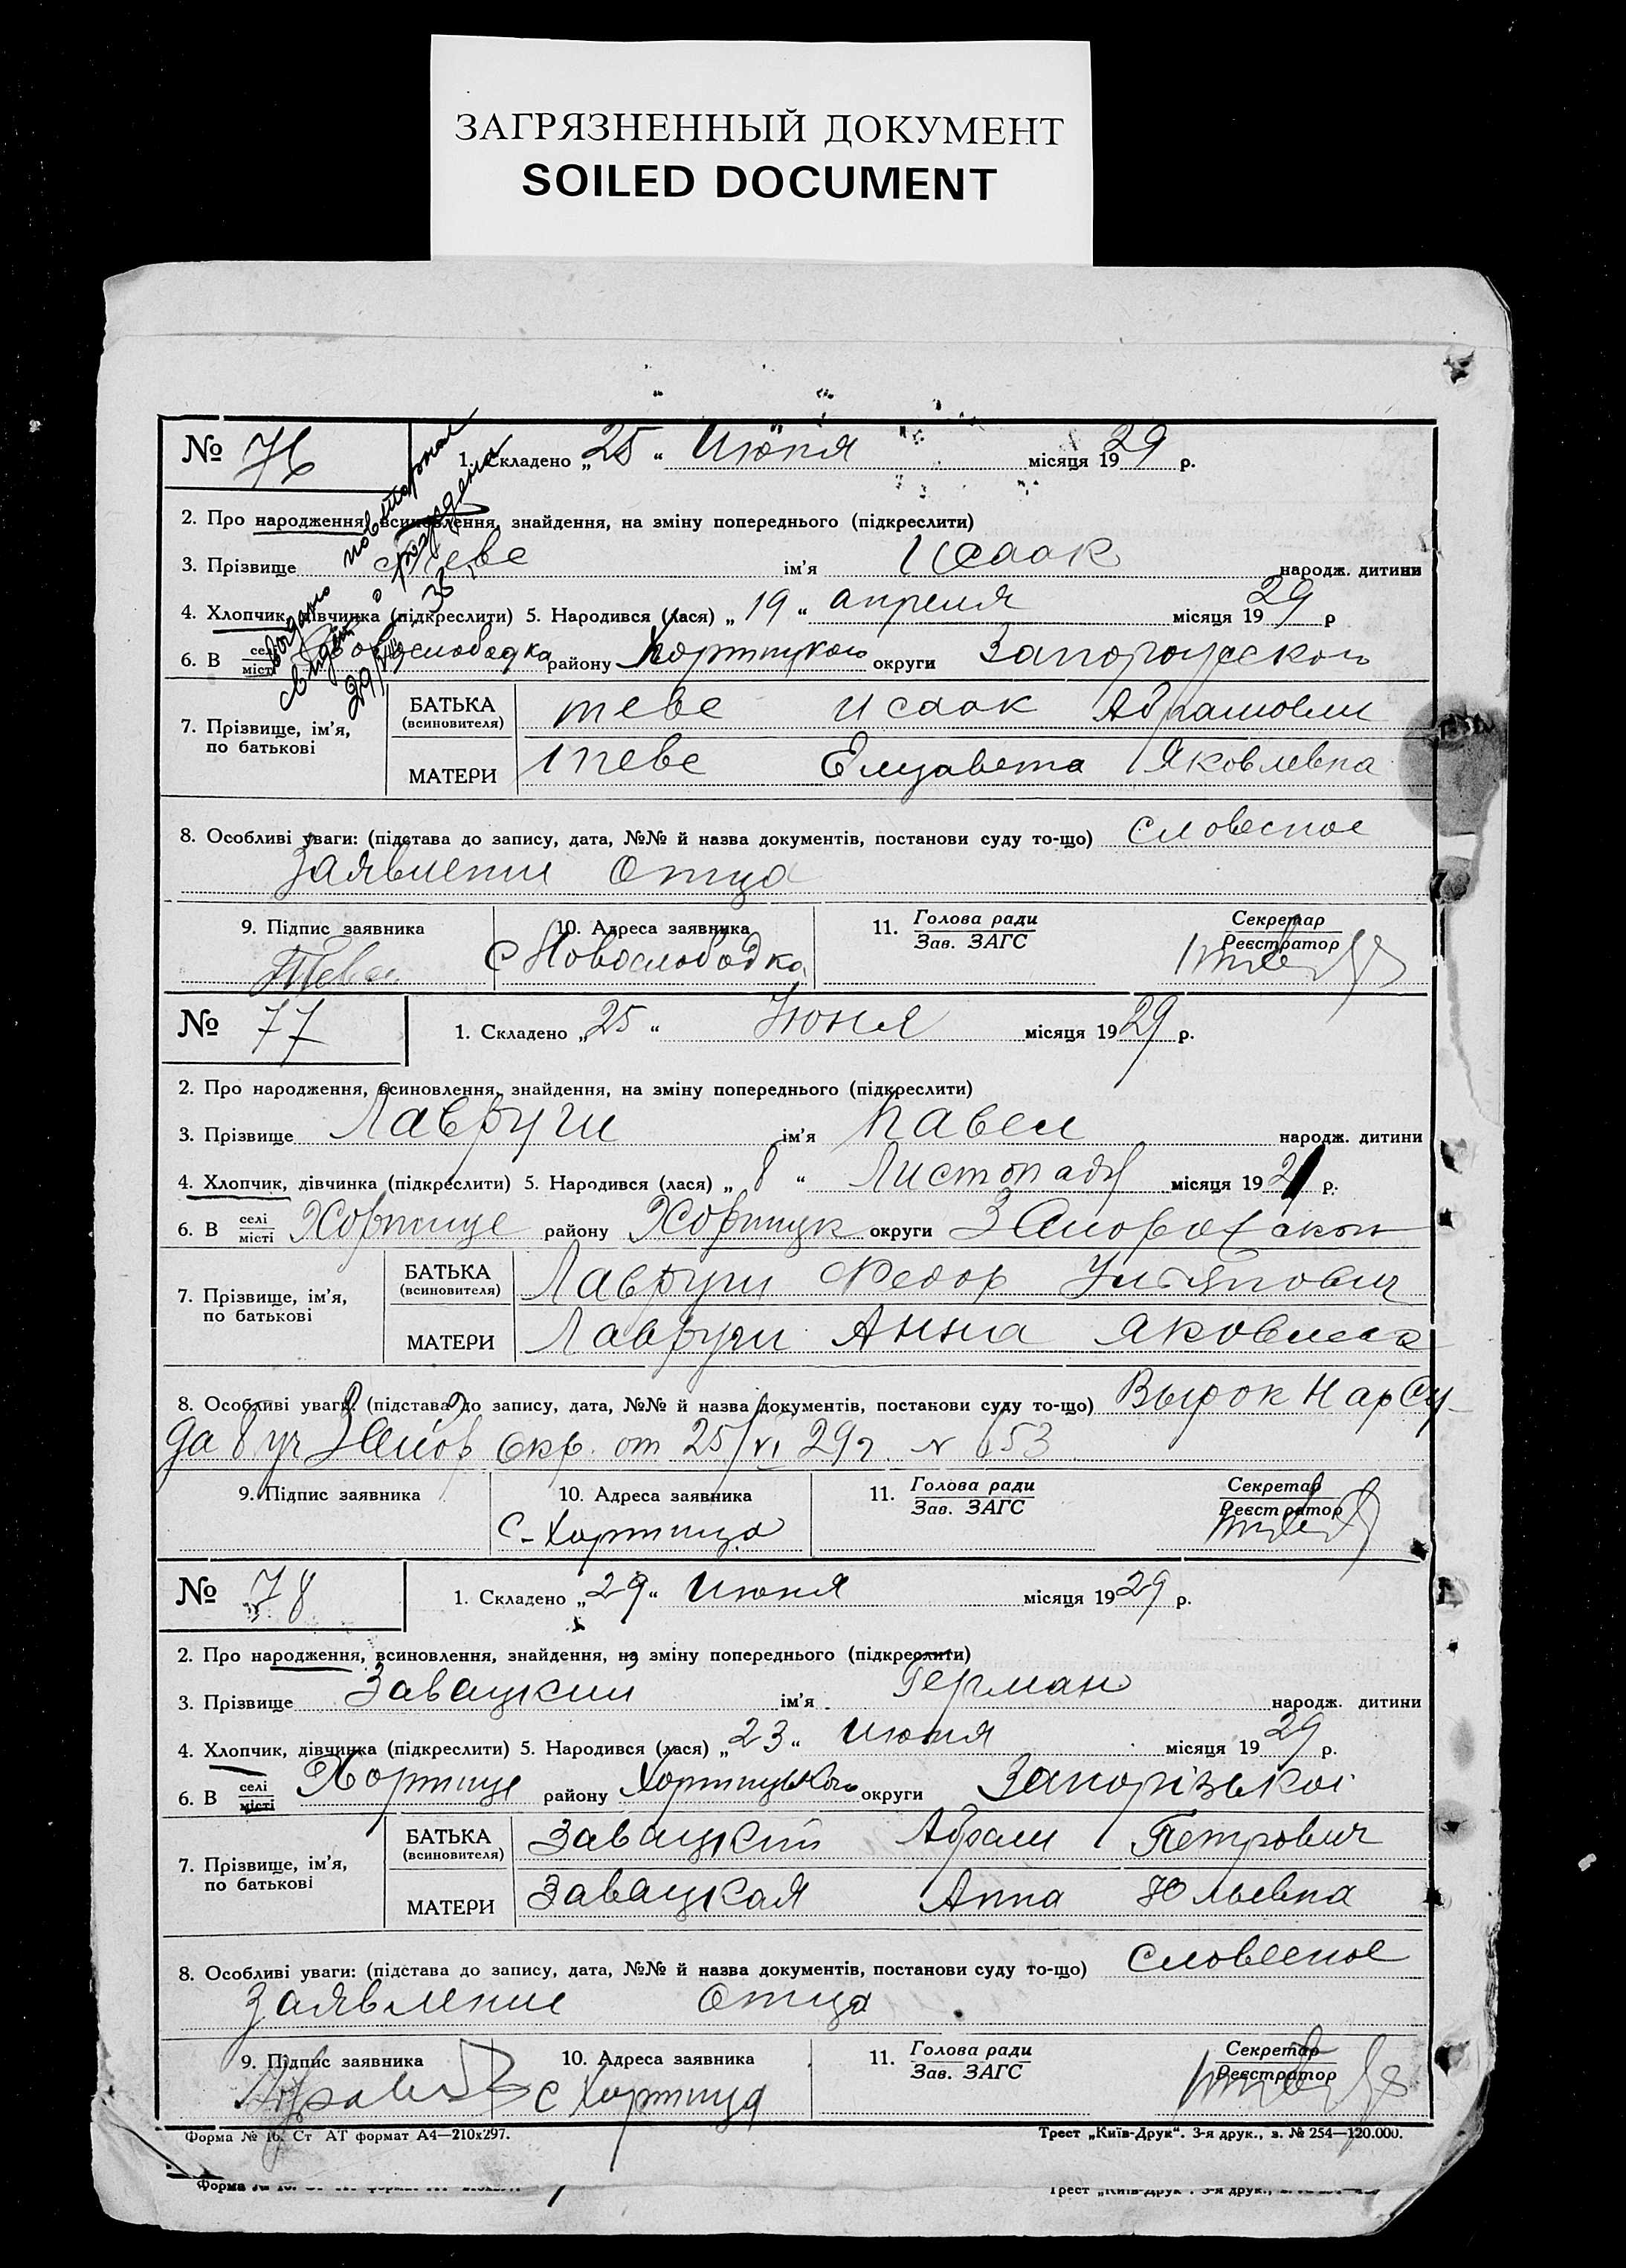 ЗАГРЯЗНЕННЫЙ ДОКУМЕНТ
SOILED DOCUMENT
№ 76
1. Складено „25“ Июня місяця 1929 р.
2. Про народження, всиновлення, знайдення, на зміну попереднього (підкреслити)
3. Прізвище Теве ім'я Исаак народж. дитини
4. Хлопчик, дівчинка (підкреслити) 5. Народився (лася) „19“ апреля місяця 1929 р
6. В селі місті Новослободка району Хортицкого округи Запорожского
7. Прізвище, ім'я, по батькові
БАТЬКА (всиновителя) теве исаак Абрамович
МАТЕРИ теве Елизавета Яковлевна
8. Особливі уваги: (підстава до запису, дата, №№ й назва документів, постанови суду то-що) Словесное
Заявление Отца
9. Підпис заявника 10. Адреса заявника 11. Голова ради Зав. ЗАГС Секретар Реєстратор
Теве С Новослободка
№ 77
1. Складено „25“ Июня місяця 1929 р.
2. Про народження, всиновлення, знайдення, на зміну попереднього (підкреслити)
3. Прізвище ім'я Павел народж. дитини
4. Хлопчик, дівчинка (підкреслити) 5. Народився (лася) „8“ Листопадя місяця 192 р.
6. В селі місті Хортице району Хортицк округи
7. Прізвище, ім'я, по батькові
БАТЬКА (всиновителя) Федор Ульянович
МАТЕРИ Анна
8. Особливі уваги: (підстава до запису, дата, №№ й назва документів, постанови суду то-що) Вырок НарСу-
да 8 уч Запор Окр. от 25/VI 29 г. N 653
9. Підпис заявника 10. Адреса заявника 11. Голова ради Зав. ЗАГС Секретар Реєстратор
С-Хортица
№ 78
1. Складено „29“ Июня місяця 1929 р.
2. Про народження, всиновлення, знайдення, на зміну попереднього (підкреслити)
3. Прізвище Завацкий ім'я Герман народж. дитини
4. Хлопчик, дівчинка (підкреслити) 5. Народився (лася) „23“ Июня місяця 1929 р.
6. В селі місті Хортице району Хортицького округи Запорізької
7. Прізвище, ім'я, по батькові
БАТЬКА (всиновителя) Завацкий Абрам Петрович
МАТЕРИ Завацкая Анна Юльевна
8. Особливі уваги: (підстава до запису, дата, №№ й назва документів, постанови суду то-що) Словесное
Заявление Отца
9. Підпис заявника 10. Адреса заявника 11. Голова ради Зав. ЗАГС Секретар Реєстратор
С Хортица
Форма № 16. Ст АТ формат А4—210х297. Трест „Київ-Друк“. 3-я друк., з. № 254—120.000.